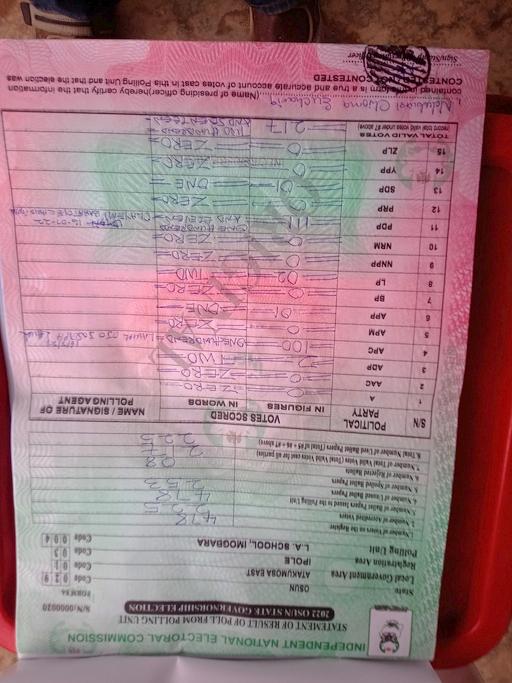 INDEPENDENT NATIONAL ELECTORAL COMMISSION
STATEMENT OF RESULT OF POLL FROM POLLING UNIT
2022 OSUN STATE GOVERNORSHIP ELECTION
S/N:0000020
FORM EC
State OSUN Code
Local Government Area ATAKUMOSA EAST Code
Registration Area IPOLE Code 0 3
Polling Unit L.A. SCHOOL, IMOGBARA Code 0 0 4
1. Number of Voters on the Register 478
2. Number of Accredited Voters 225
3. Number of Ballot Papers Issued to the Polling Unit 478
4. Number of Unused Ballot Papers 253
5. Number of Spoiled Ballot Papers
6. Number of Rejected Ballots 08
7. Number of Total Valid Votes (Total Valid Votes cast for all parties) 217
8. Total Number of Used Ballot Papers (Total of #5 + #6 + #7 above) 225
S/N POLITICAL PARTY VOTES SCORED NAME / SIGNATURE OF POLLING AGENT
IN FIGURES IN WORDS
1 A 0 ZERO
2 AAC 0 ZERO
3 ADP 2 TWO
4 APC 100 ONE HUNDRED
5 APM 0 ZERO
6 APP 01 ONE
7 BP 0 ZERO
8 LP 02 TWO
9 NNPP 0 ZERO
10 NRM 0 ZERO
11 PDP 111 ONE HUNDRED AND ELEVEN
12 PRP 0
13 SDP 01 ONE
14 YPP 0 ZERO
15 ZLP 0 ZERO
TOTAL VALID VOTES 217 TWO HUNDRED AND SEVENTEEN
record total valid votes under #7 above
I, (Name of presiding officer)hereby certify that the information
contained in this form is a true and accurate account of votes cast in this Polling Unit and that the election was
CONTESTED / NOT CONTESTED
ORIGINAL